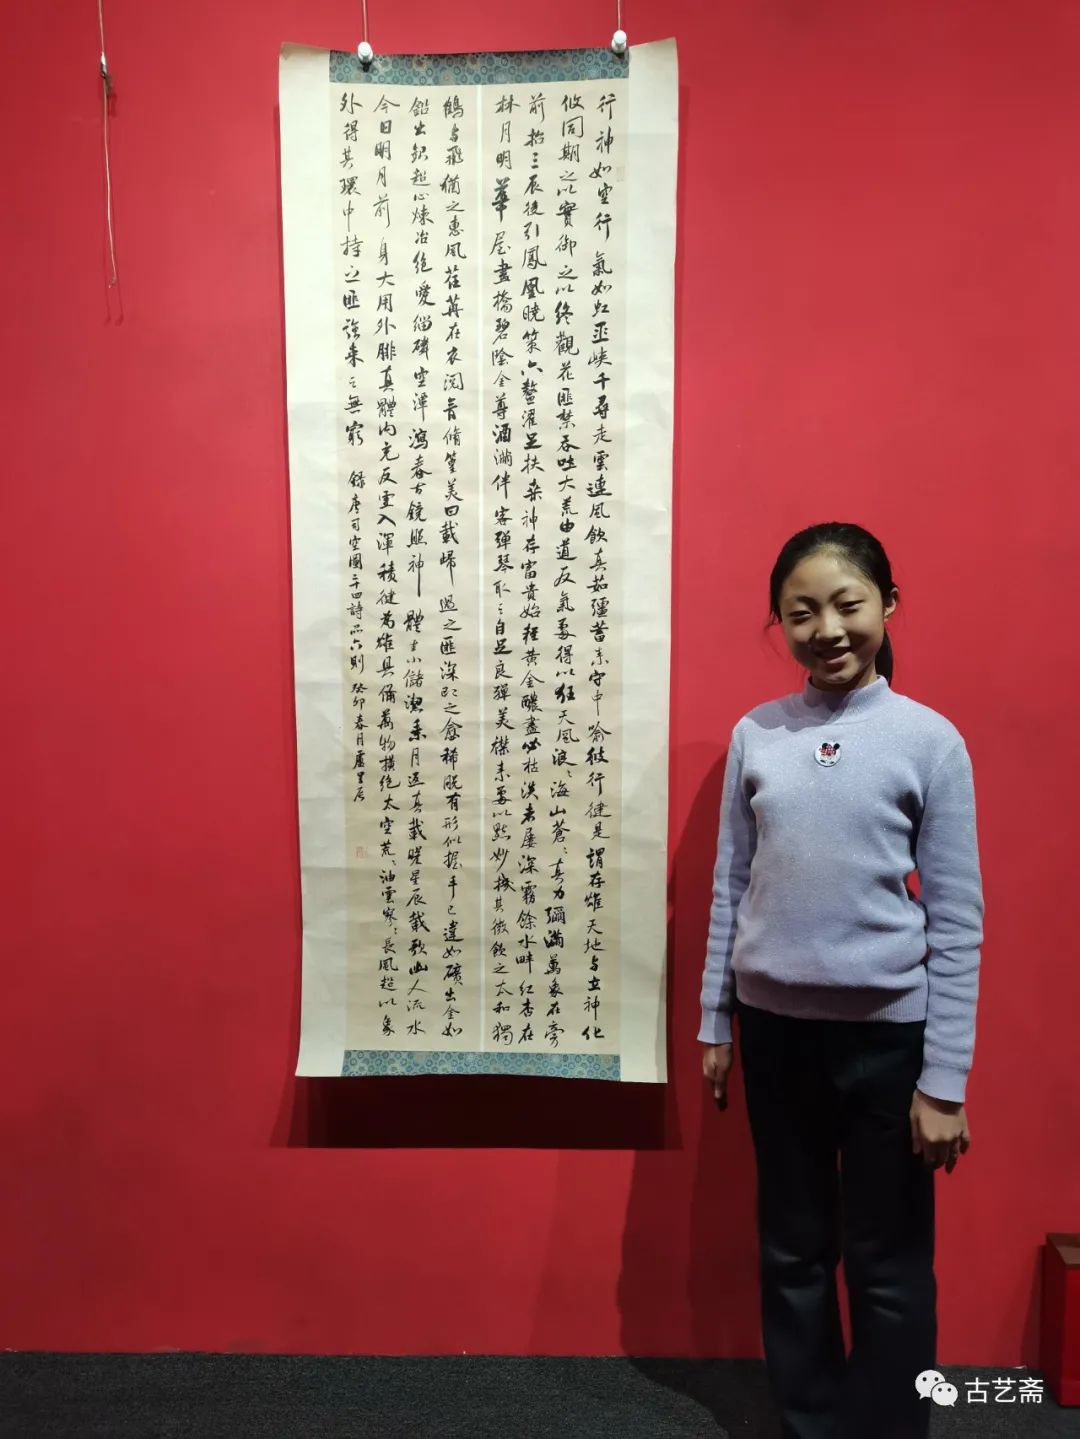 行神如空行氣如虹巫峽千尋走雲連風飲真茹彊蓄素守中喻彼行健是謂存雄天地与立神化
攸同期之以實御之以終觀花匪禁吞吐大荒由道反氣處得以狂天風浪〻海山蒼〻真力彌滿萬象在旁
前招三辰後引鳳凰曉策六鰲濯足扶桑神存富貴始輕黃金濃盡必枯淡者屢深霧餘水畔紅杏在
林月明華屋畫橋碧陰金尊酒滿伴客彈琴取之自足良殫美襟素處以默妙機其微飲之太和獨
鶴与飛猶之惠風荏苒在衣閱音脩篁美曰載歸遇之匪深即之愈稀脫有形似握手已違如礦出金如
鉛出銀超心煉冶絕愛緇磷空潭瀉春古鏡照神體素儲潔乘月返真載瞻星辰載歌幽人流水
今日明月前身大用外腓真體內充反虛入渾積健為雄具備萬物橫絕太空荒〻油雲寥〻長風超以象
外得其環中持之匪強來之無窮 錄唐司空圖二十四詩品六則 癸卯春月盧
古艺斋